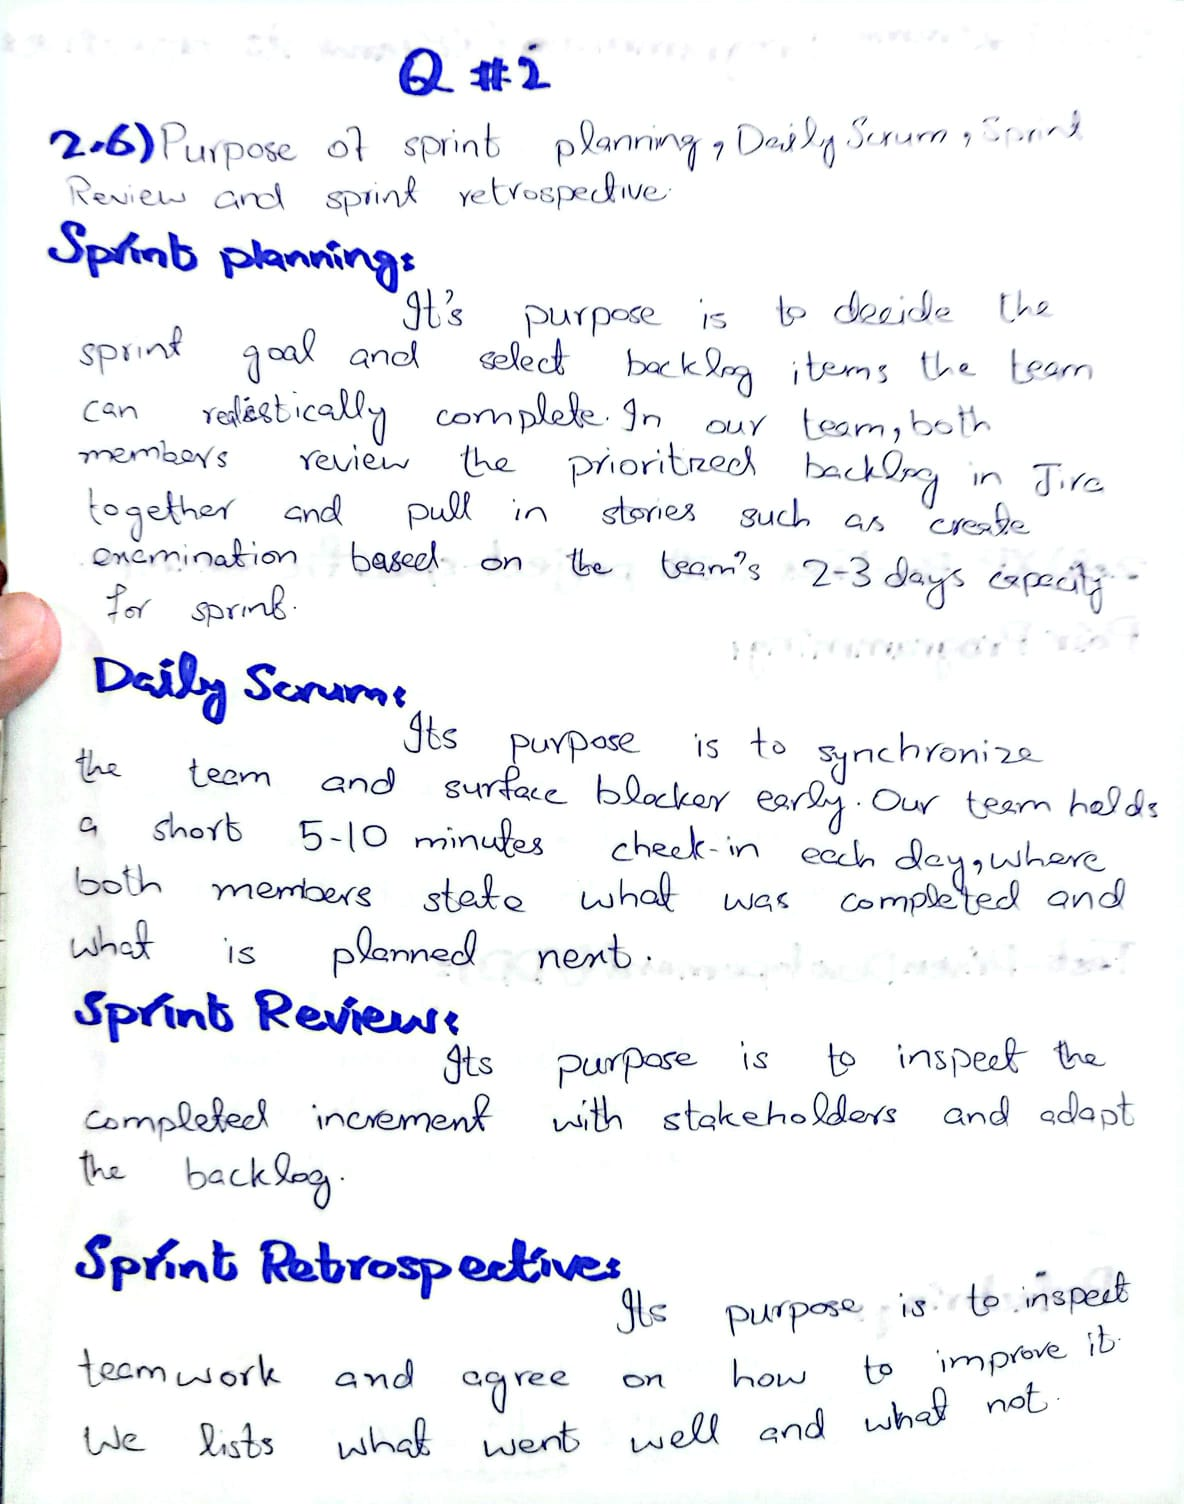 Q #2
2.6) Purpose of sprint planning, Daily Scrum, Sprint
Review and sprint retrospective
Sprint planning:
It's purpose is to decide the
sprint goal and select backlog items the team
can realistically complete. In our team, both
members review the prioritized backlog in Jira
together and pull in stories such as create
examination based on the team's 2-3 days capacity
for sprint.
Daily Scrum:
Its purpose is to synchronize
the team and surface blocker early. Our team holds
a short 5-10 minutes check-in each day, where
both members state what was completed and
what is planned next.
Sprint Review:
Its purpose is to inspect the
completed increment with stakeholders and adapt
the backlog.
Sprint Retrospective:
Its purpose is to inspect
teamwork and agree on how to improve it.
We lists what went well and what not.